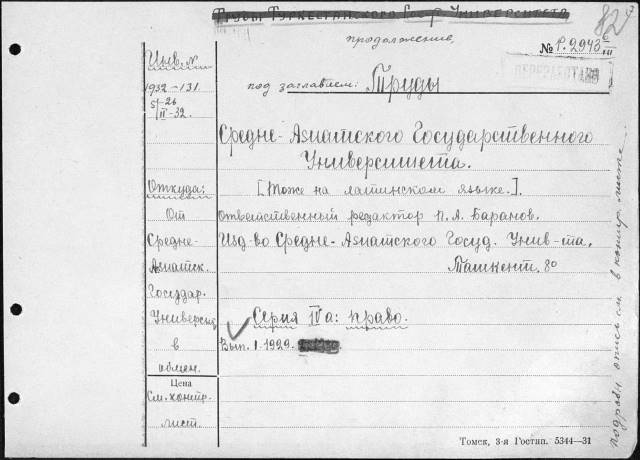 Труды Туркестанского Госуд. Университета
продолжение,
№ Р.2943
ПЕРЕРАБОТАН
под заглавием: Труды
Средне-Азиатского Государственного
Университета.
[Тоже на латинском языке.].
Ответственный редактор П. А. Баранов.
Изд-во Средне-Азиатского Госуд. Унив-та.
Ташкент. 8°
Серия IVa: право.
Вып. 1. 1929.
Инв. №
1932-131.
5/II-32.
Откуда:
От
Средне-
Азиатск.
Государ.
Универси
в
обмен.
Цена
См. контр.
лист.
подробн. опись см. в контр. листе
Томск, 3-я Гостип. 5344—31